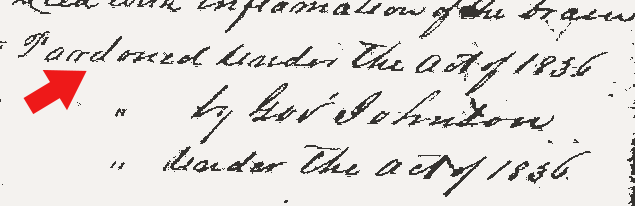 Died with inflamation of the brain
Pardoned under the act of 1836
" by Gov Johnston
" under the act of 1836